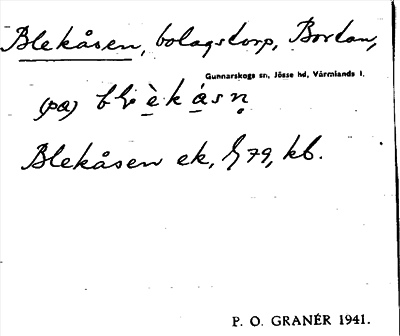 Blekåsen, bolagstorp, Bortan,
Gunnarskogs sn, Jösse hd, Värmlands l.
(pa)
Blekåsen ek, 79, kb.
P. O. GRANÉR 1941.